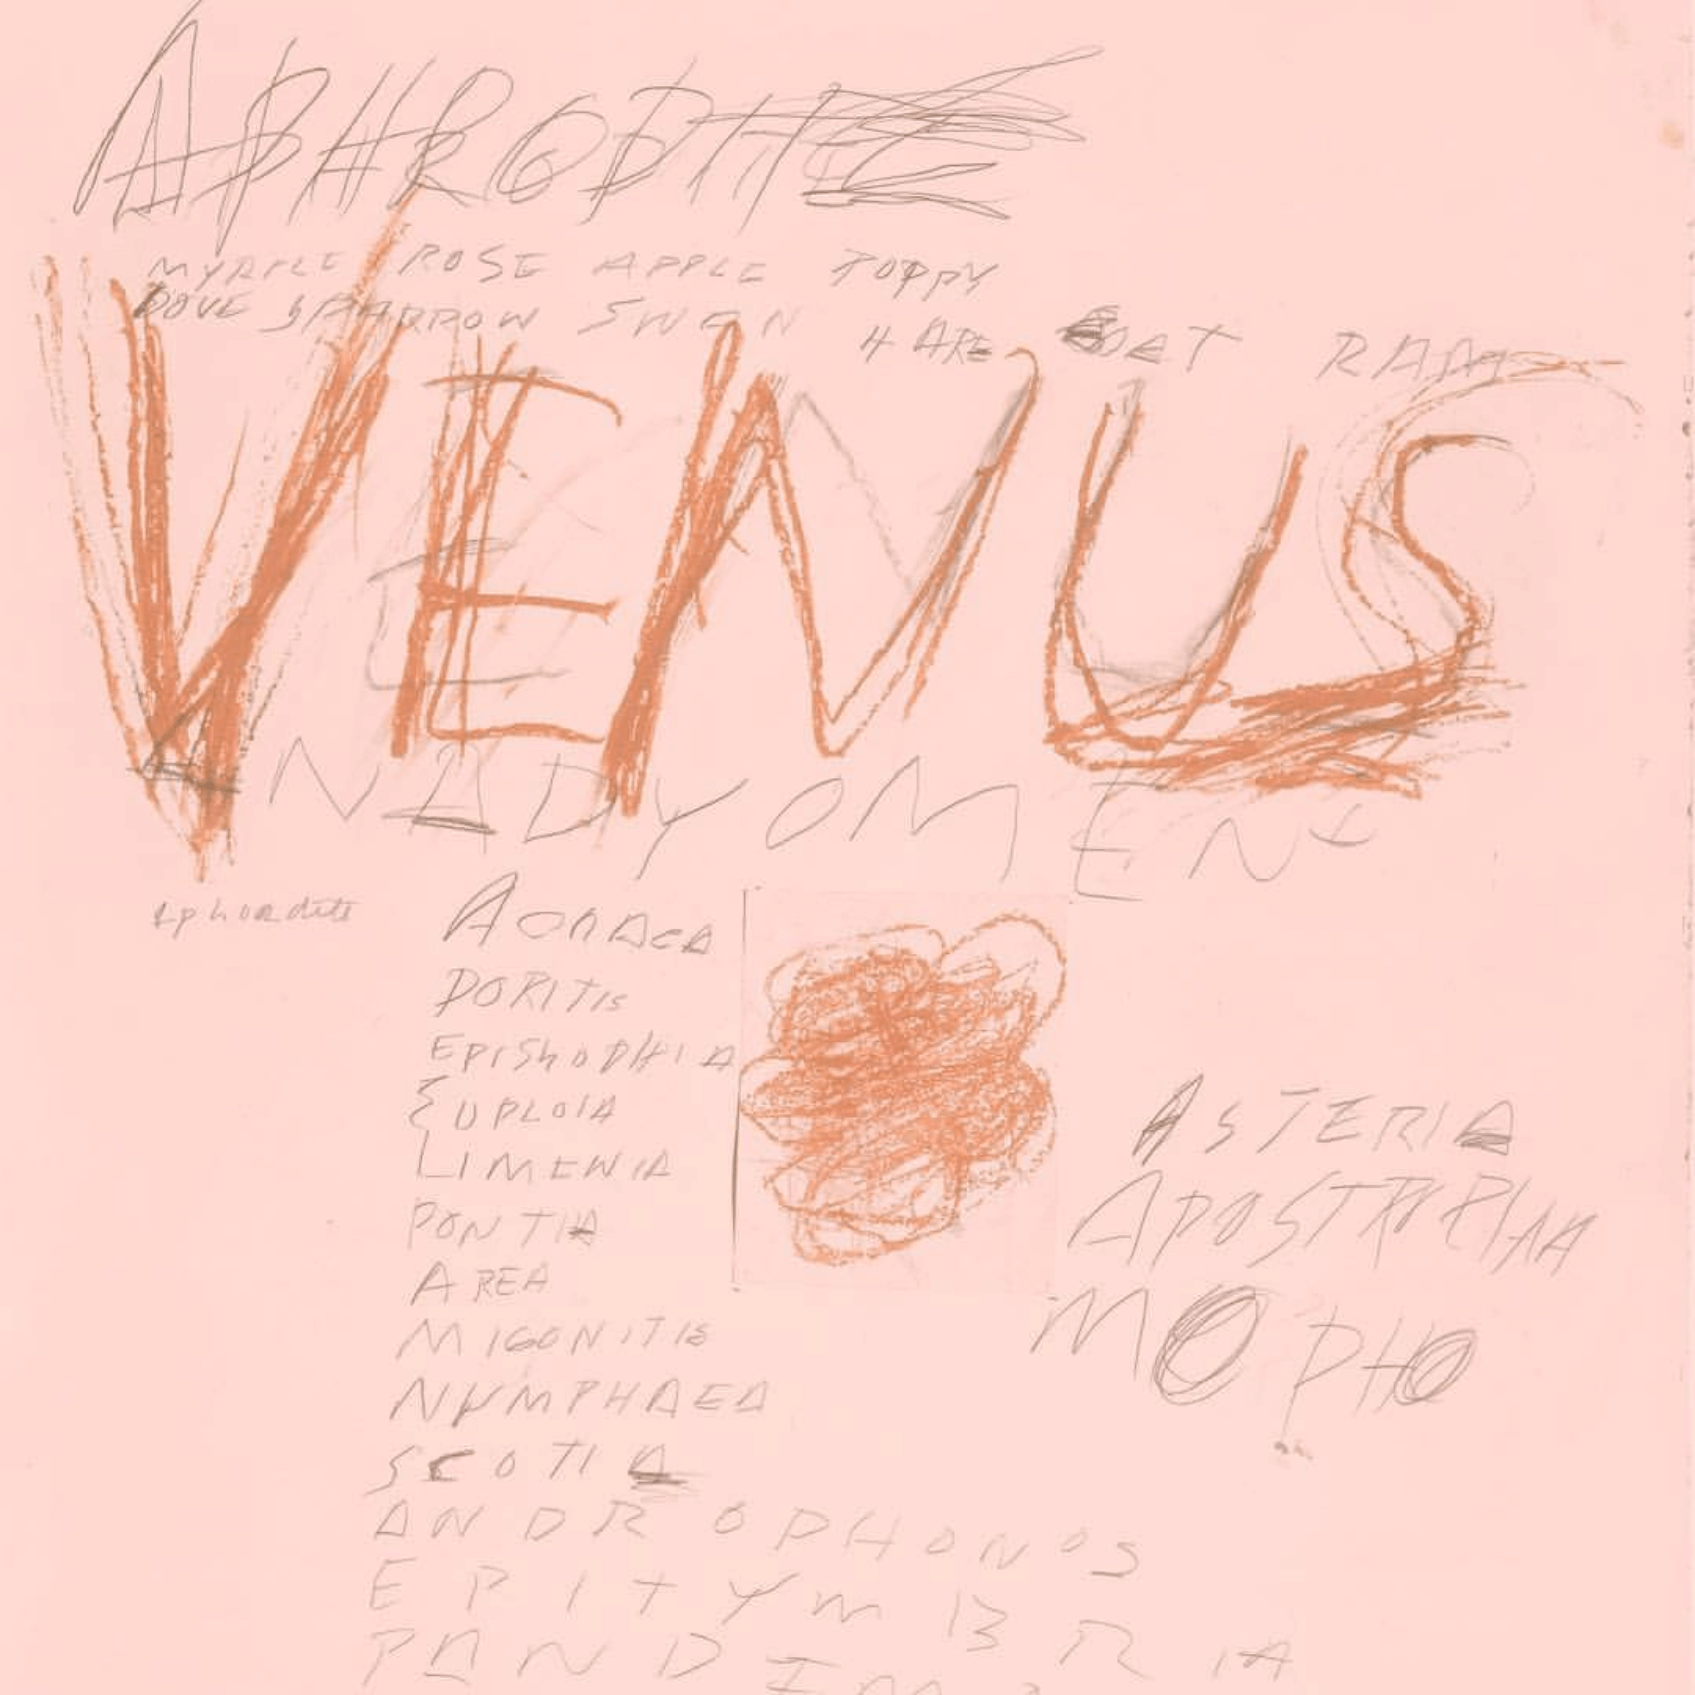 APHRODITE
MYRTLE ROSE APPLE POPPY
DOVE SPARROW SWAN HARE GOAT RAM
VENUS
ANADYOMENE
Aphrodite
DORITIS
EPISKOPHIA
EUPLOIA
LIMENIA
PONTIA
AREA
MIGONITIS
NUMPHAEA
SCOTIA
ANDROPHONOS
EPITYMBRIA
ASTERIA
APOSTROPHIA
MOPHO